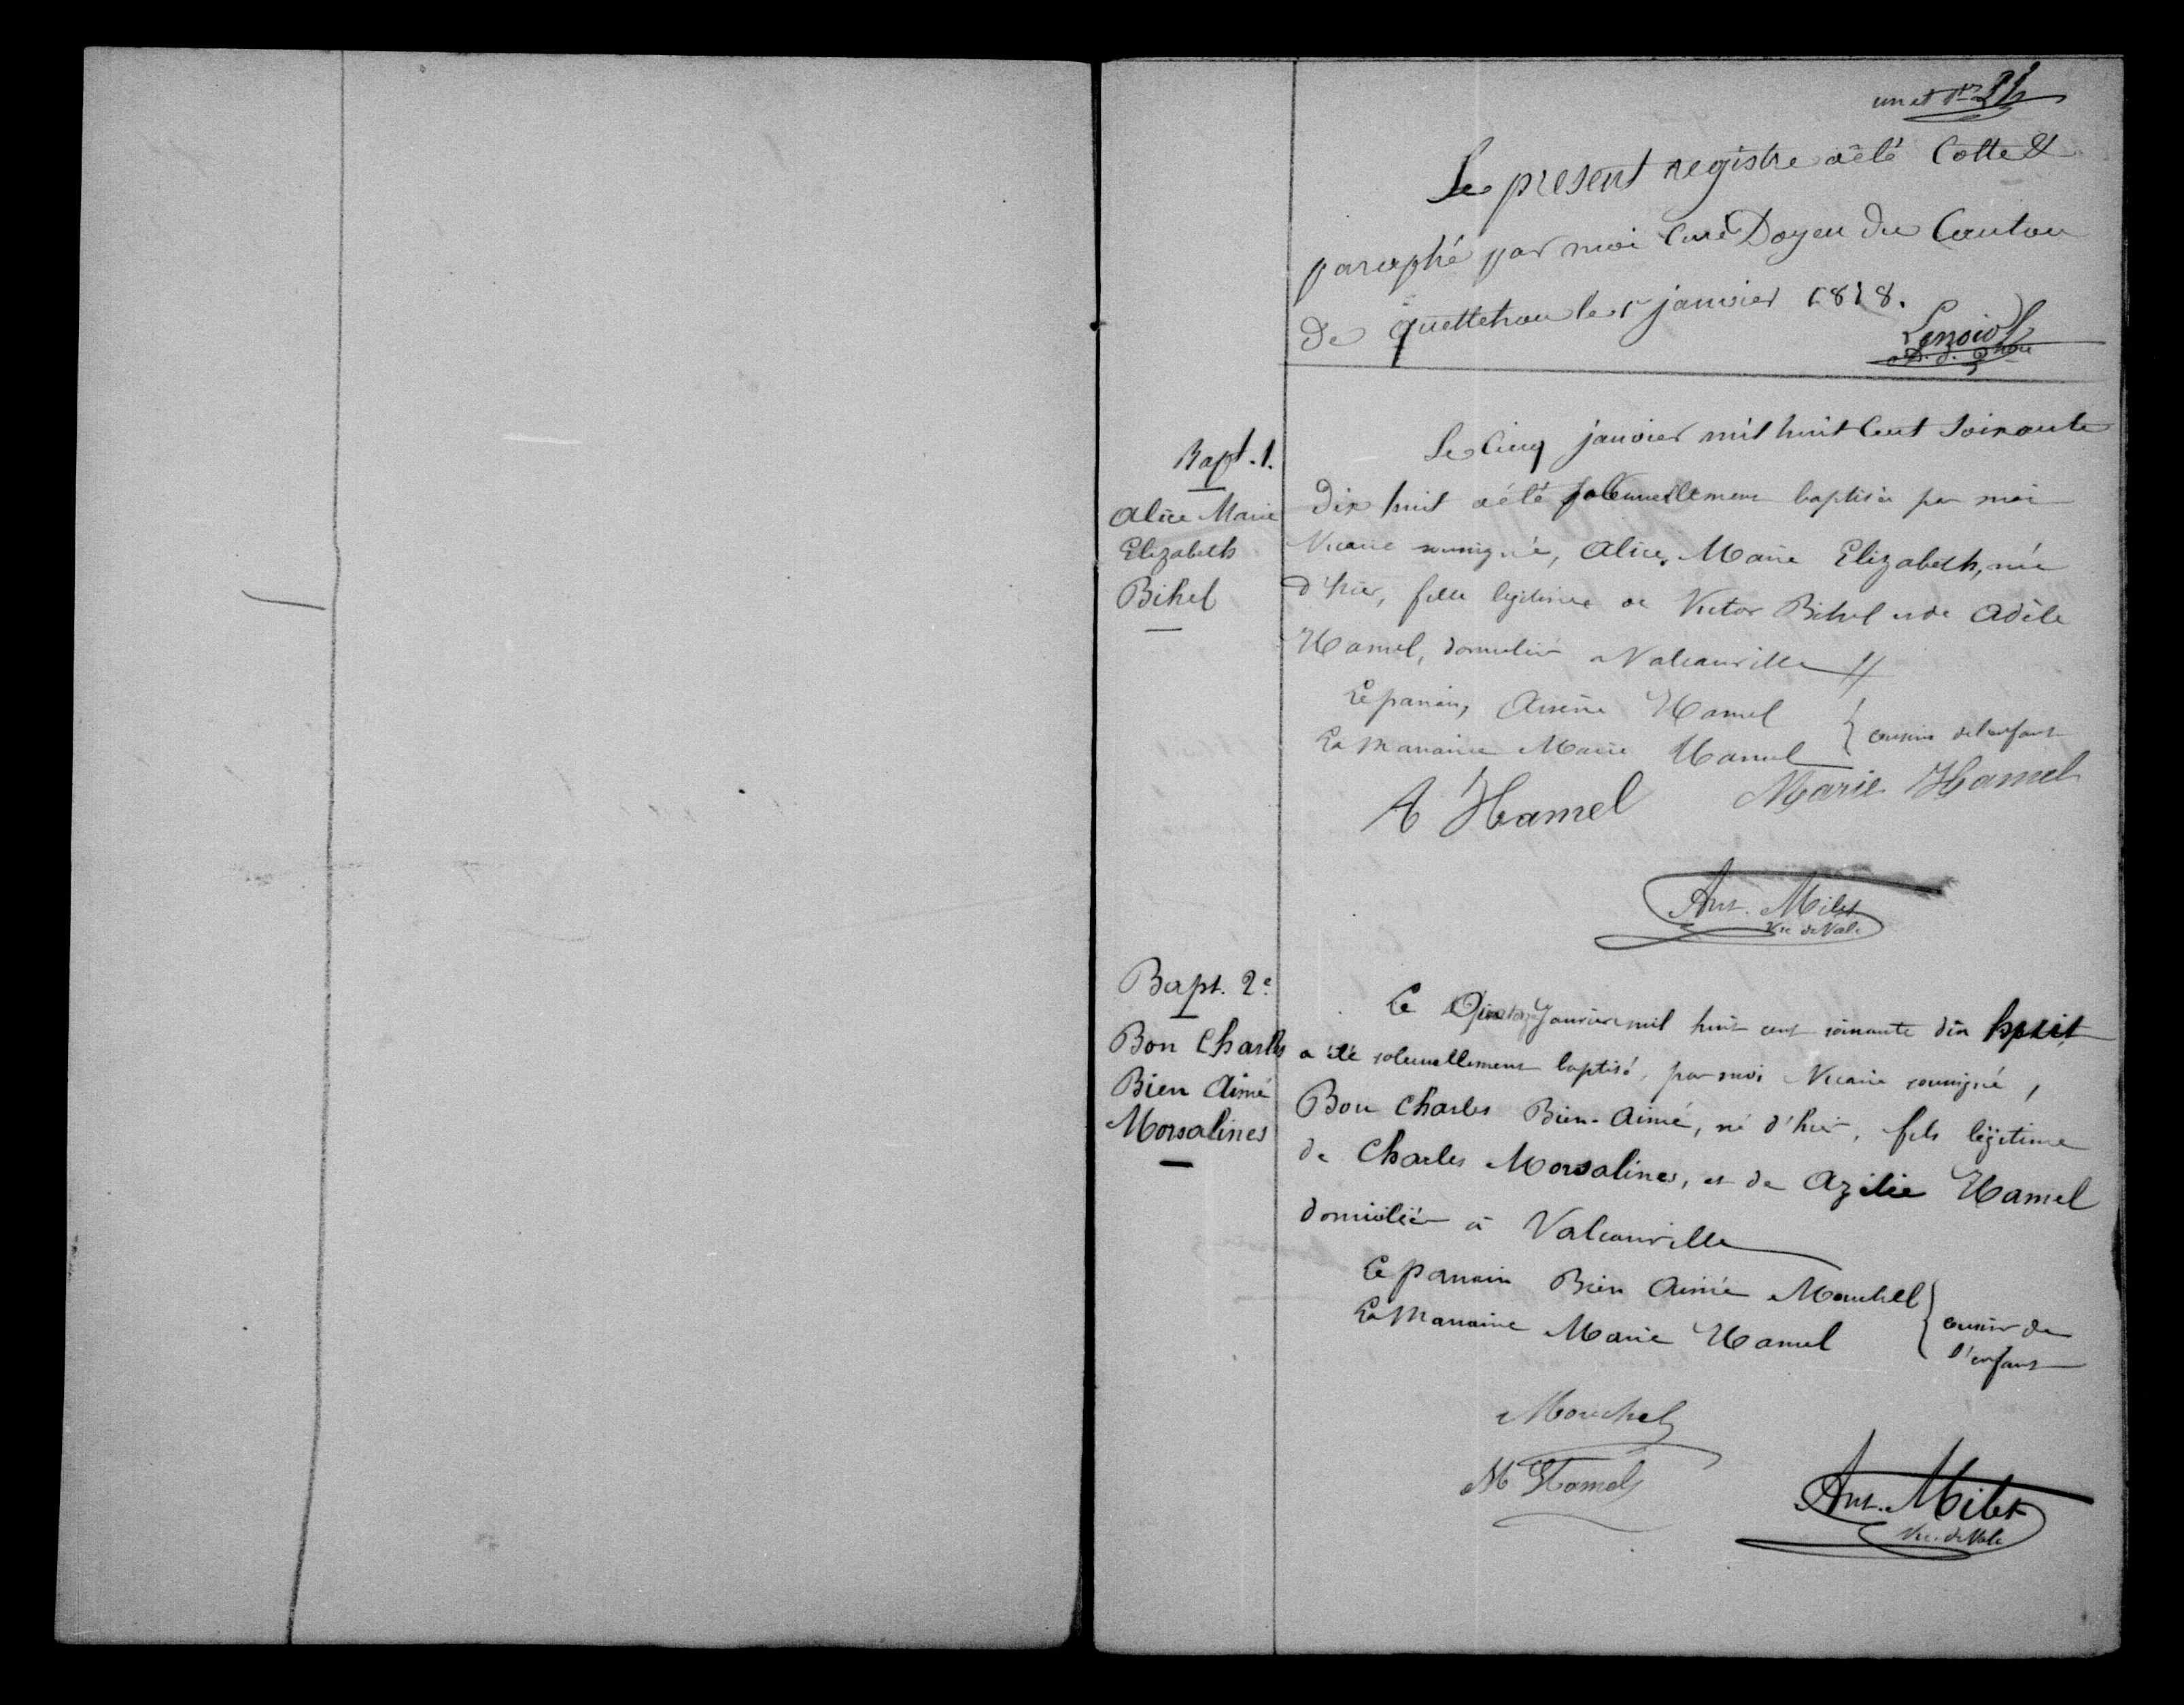 un et
Le present registre a été Cotté et
paraphé par moi Curé Doyen du Canton
de quettehou le 1 janvier 1878.
Lenoir
Bapt. 1.
Alice Marie
Elizabeth
Bihel
Le Cinq janvier mil huit Cent Soixante
Dix huit a été solennellement baptisée par moi
Vicaire soussigné, Alice Marie Elizabeth, née
d'hier, fille légitime de Victor Bihel et de Adèle
Hamel, domiciliés à Valcanville
Le parrain, Arsène Hamel
La Marraine Marie Hamel
cousins de l'enfant
A Hamel Marie Hamel
Ant. Milet
Vic de Valc
Bapt. 2e.
Bon Charles
Bien Aimé
Morsalines
Le Janvier mil huit cent soixante dix huit
a été solennellement baptisé, par moi Vicaire soussigné,
Bon Charles Bien-Aimé, né d'hier, fils légitime
de Charles Morsalines, et de Azélie Hamel
domiciliés à Valcanville
Le parrain Bien Aimé Mouchel
La Marraine Marie Hamel
cousins de
l'enfant
Mouchel
M Hamel
Ant. Milet
Vic. de Valc